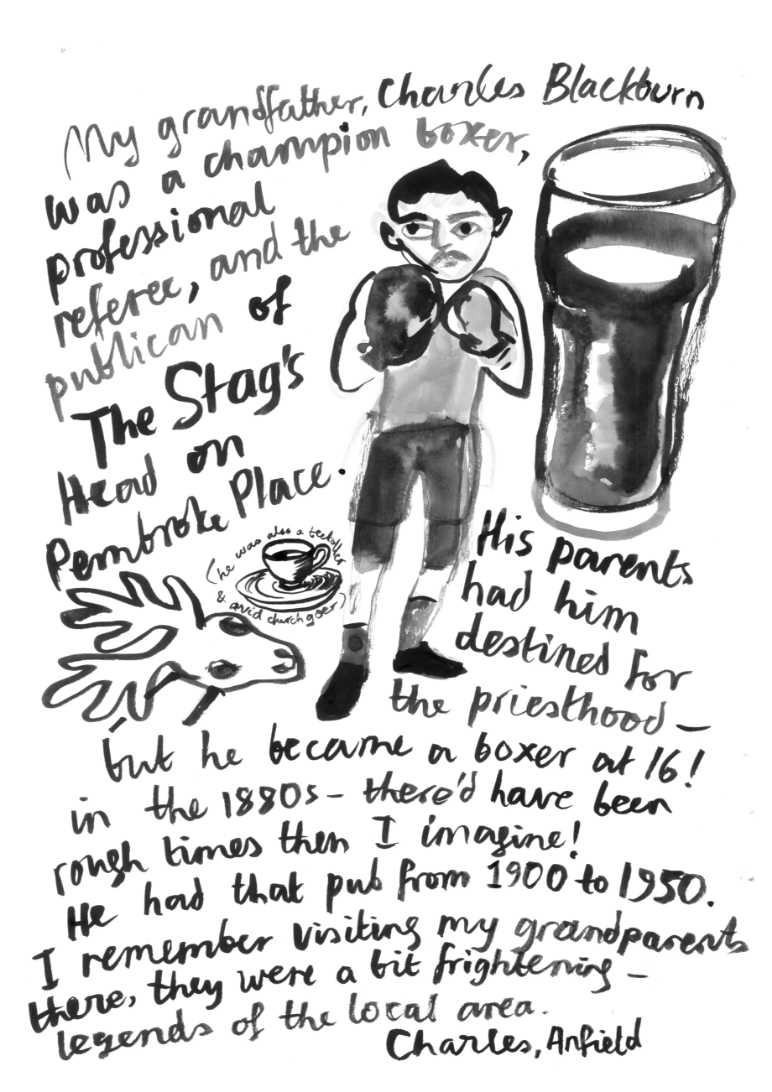 My grandfather, Charles Blackburn
was a champion boxer,
professional
referee, and the
publican of
The Stag's
Head on
Pembroke Place.
(he was also a teetotaller
& avid churchgoer)
His parents
had him
destined for
the priesthood –
but he became a boxer at 16!
in the 1880s – there'd have been
rough times then I imagine!
He had that pub from 1900 to 1950.
I remember visiting my grandparents
there, they were a bit frightening –
legends of the local area.
Charles, Anfield